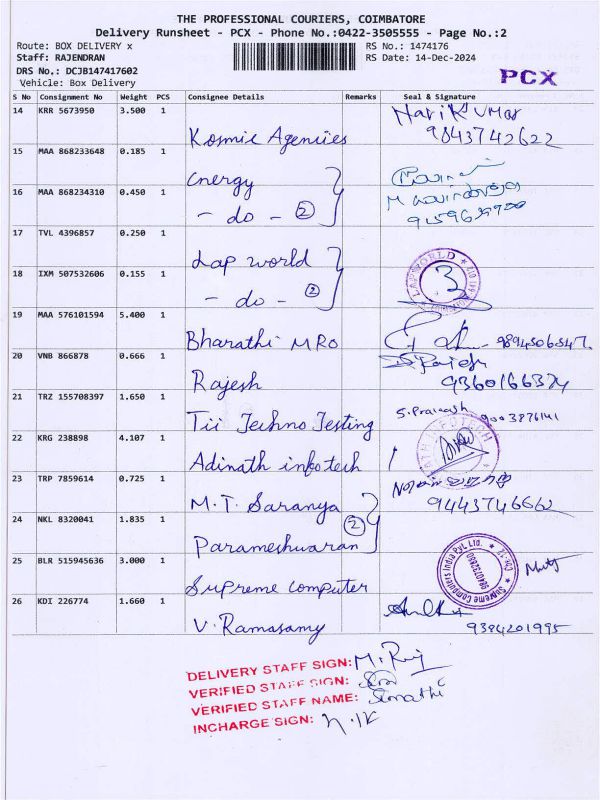 THE PROFESSIONAL COURIERS, COIMBATORE
Delivery Runsheet - PCX - Phone No.:0422-3505555 - Page No.:2
Route: BOX DELIVERY x RS No.: 1474176
Staff: RAJENDRAN RS Date: 14-Dec-2024
DRS No.: DCJB147417602
Vehicle: Box Delivery PCX
S No Consignment No Weight PCS Consignee Details Remarks Seal & Signature
14 KRR 5673950 3.500 1 Kosmic Agenciies HariKUMar
9843742622
15 MAA 868233648 0.185 1 Energy
16 MAA 868234310 0.450 1 - do - 2
17 TVL 4396857 0.250 1 Lap world LAPWORLD
18 IXM 507532606 0.155 1 - do - 2
19 MAA 576101594 5.400 1 Bharathi MRO
20 VNB 866878 0.666 1 Rajesh
21 TRZ 155708397 1.650 1 Tii Techno Testing S. Prakash 9003876141
22 KRG 238898 4.107 1 Adinath infotech
23 TRP 7859614 0.725 1 M.T. Saranya
9443746662
24 NKL 8320041 1.835 1 Parameshwaran 2
25 BLR 515945636 3.000 1 Supreme computer Supreme Computers India Pvt. Ltd.
26 KDI 226774 1.660 1 V. Ramasamy 9384201995
DELIVERY STAFF SIGN:
VERIFIED STAFF SIGN:
VERIFIED STAFF NAME:
INCHARGE SIGN: